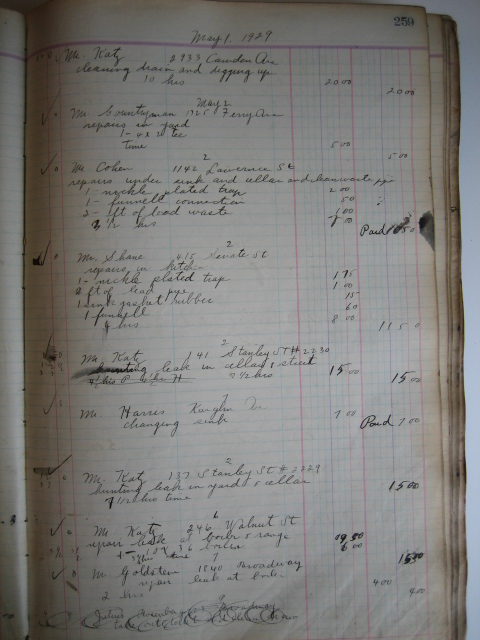 259
May 1. 1929
Mr. Katz 2933 Camden Ave
cleaning drain and digging up
10 hrs 20 00
20 00
May 2
Mr. Countryman 1725 Ferry Ave
repairs in yard
1 - 4 x tee
time 5 00
5 00
2
Mr. Cohen 1142 Lawrence St
repairs under sink and cellar and clean waste pipe
1 - nickle plated trap 2 00
1 - funnell connection 50
2 - ft of lead waste 1 00
3 1/2 hrs
Paid
2
Mr. Shane 415 Senate St
repairs in kitchen
1 - nickle plated trap 1 75
2 ft of lead pipe 1 00
1 sink gasket rubber 15
1 funnell 60
4 hrs 8 00
11 50
2
Mr. Katz 141 Stanley St # 2230
hunting leak in cellar & street
7 1/2 hrs 15 00
15 00
Mr. Harris Kaighn Ave
changing sink 7 00
Paid 7 00
2
Mr. Katz 137 Stanley St # 2229
hunting leak in yard & cellar
7 1/2 hrs time
15 00
6
Mr. Katz 246 Walnut St
repair leak at boiler & range
boiler
time 6 00
7
Mr. Goldstein 1840 Broadway
repair leak at boiler
2 hrs 4 00
4 00
Broadway